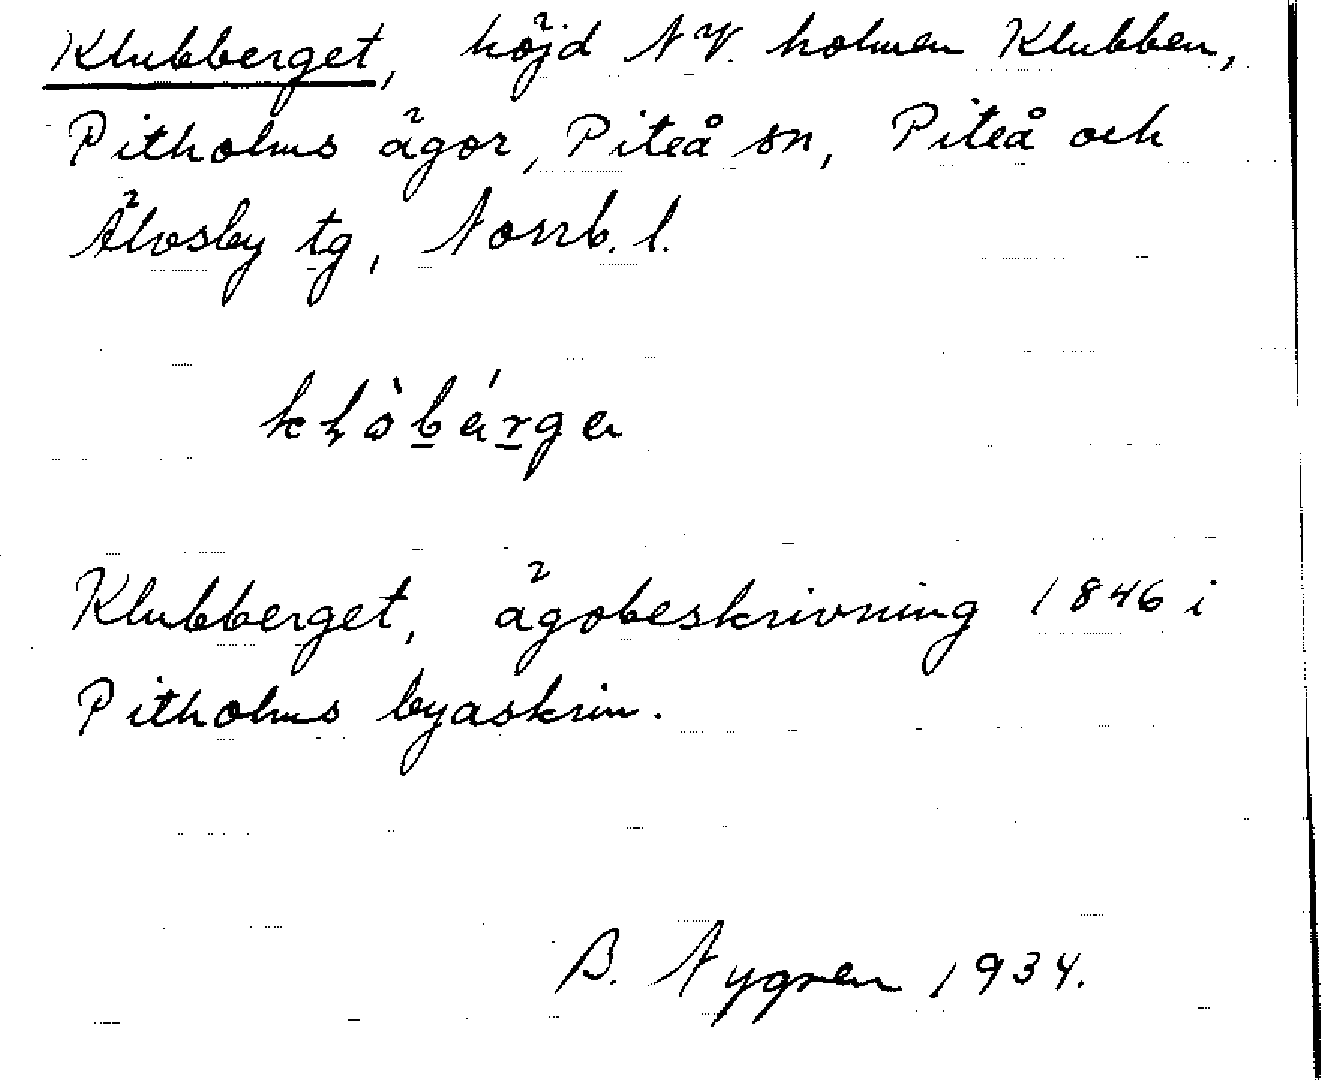 Klubberget, höjd NV. holmen Klubben,
Pitholms ägor, Piteå sn, Piteå och
Älvsby tg, Norrb. l.
Klubberget, ägobeskrivning 1846 i
Pitholms byaskrin.
B. Nygren 1934.